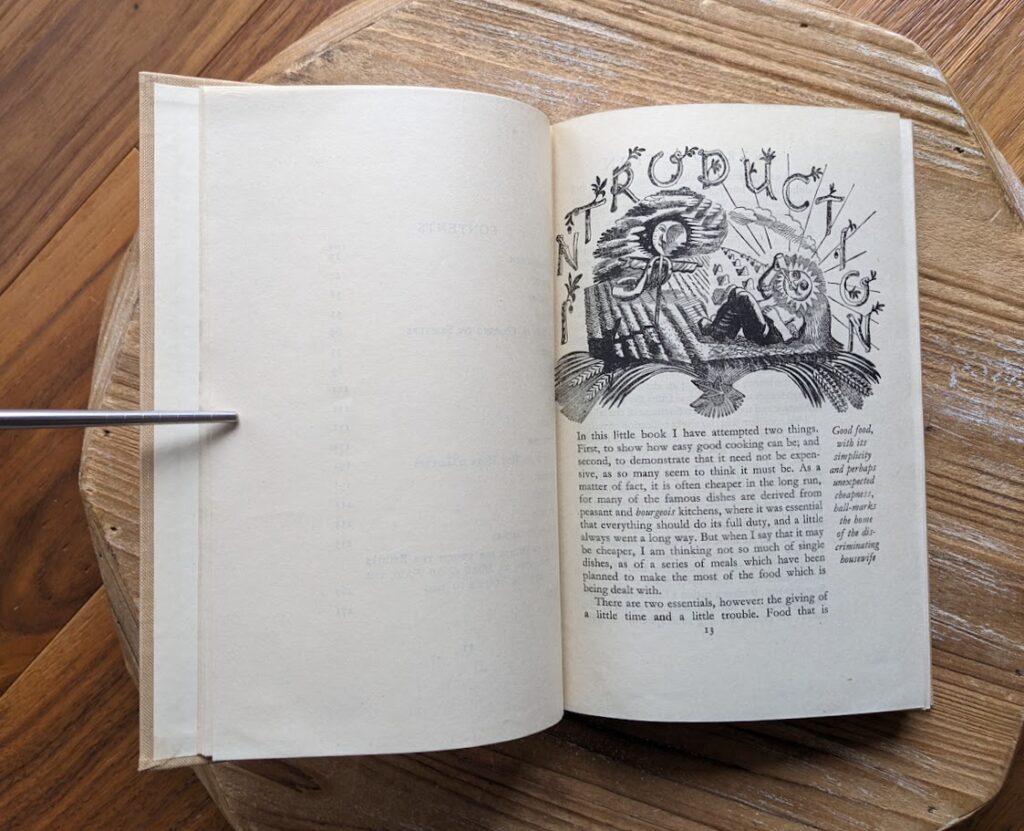 CONTENTS
INTRODUCTION
In this little book I have attempted two things.
First, to show how easy good cooking can be; and
second, to demonstrate that it need not be expen-
sive, as so many seem to think it must be. As a
matter of fact, it is often cheaper in the long run,
for many of the famous dishes are derived from
peasant and bourgeois kitchens, where it was essential
that everything should do its full duty, and a little
always went a long way. But when I say that it may
be cheaper, I am thinking not so much of single
dishes, as of a series of meals which have been
planned to make the most of the food which is
being dealt with.
There are two essentials, however: the giving of
a little time and a little trouble. Food that is
Good food,
with its
simplicity
and perhaps
unexpected
cheapness,
hall-marks
the home
of the dis-
criminating
housewife
13